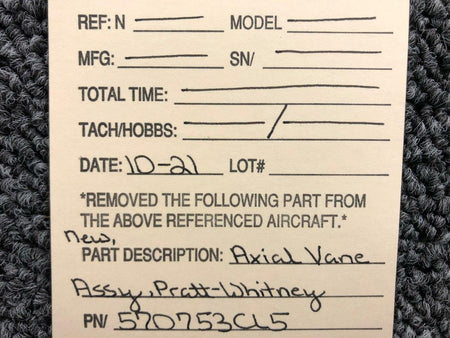 REF: N — MODEL —
MFG: — SN/ —
TOTAL TIME: —
TACH/HOBBS: — / —
DATE: 10-21 LOT#
*REMOVED THE FOLLOWING PART FROM
THE ABOVE REFERENCED AIRCRAFT.*
New,
PART DESCRIPTION: Axial Vane
Assy, Pratt-Whitney
PN/ 570753CL5